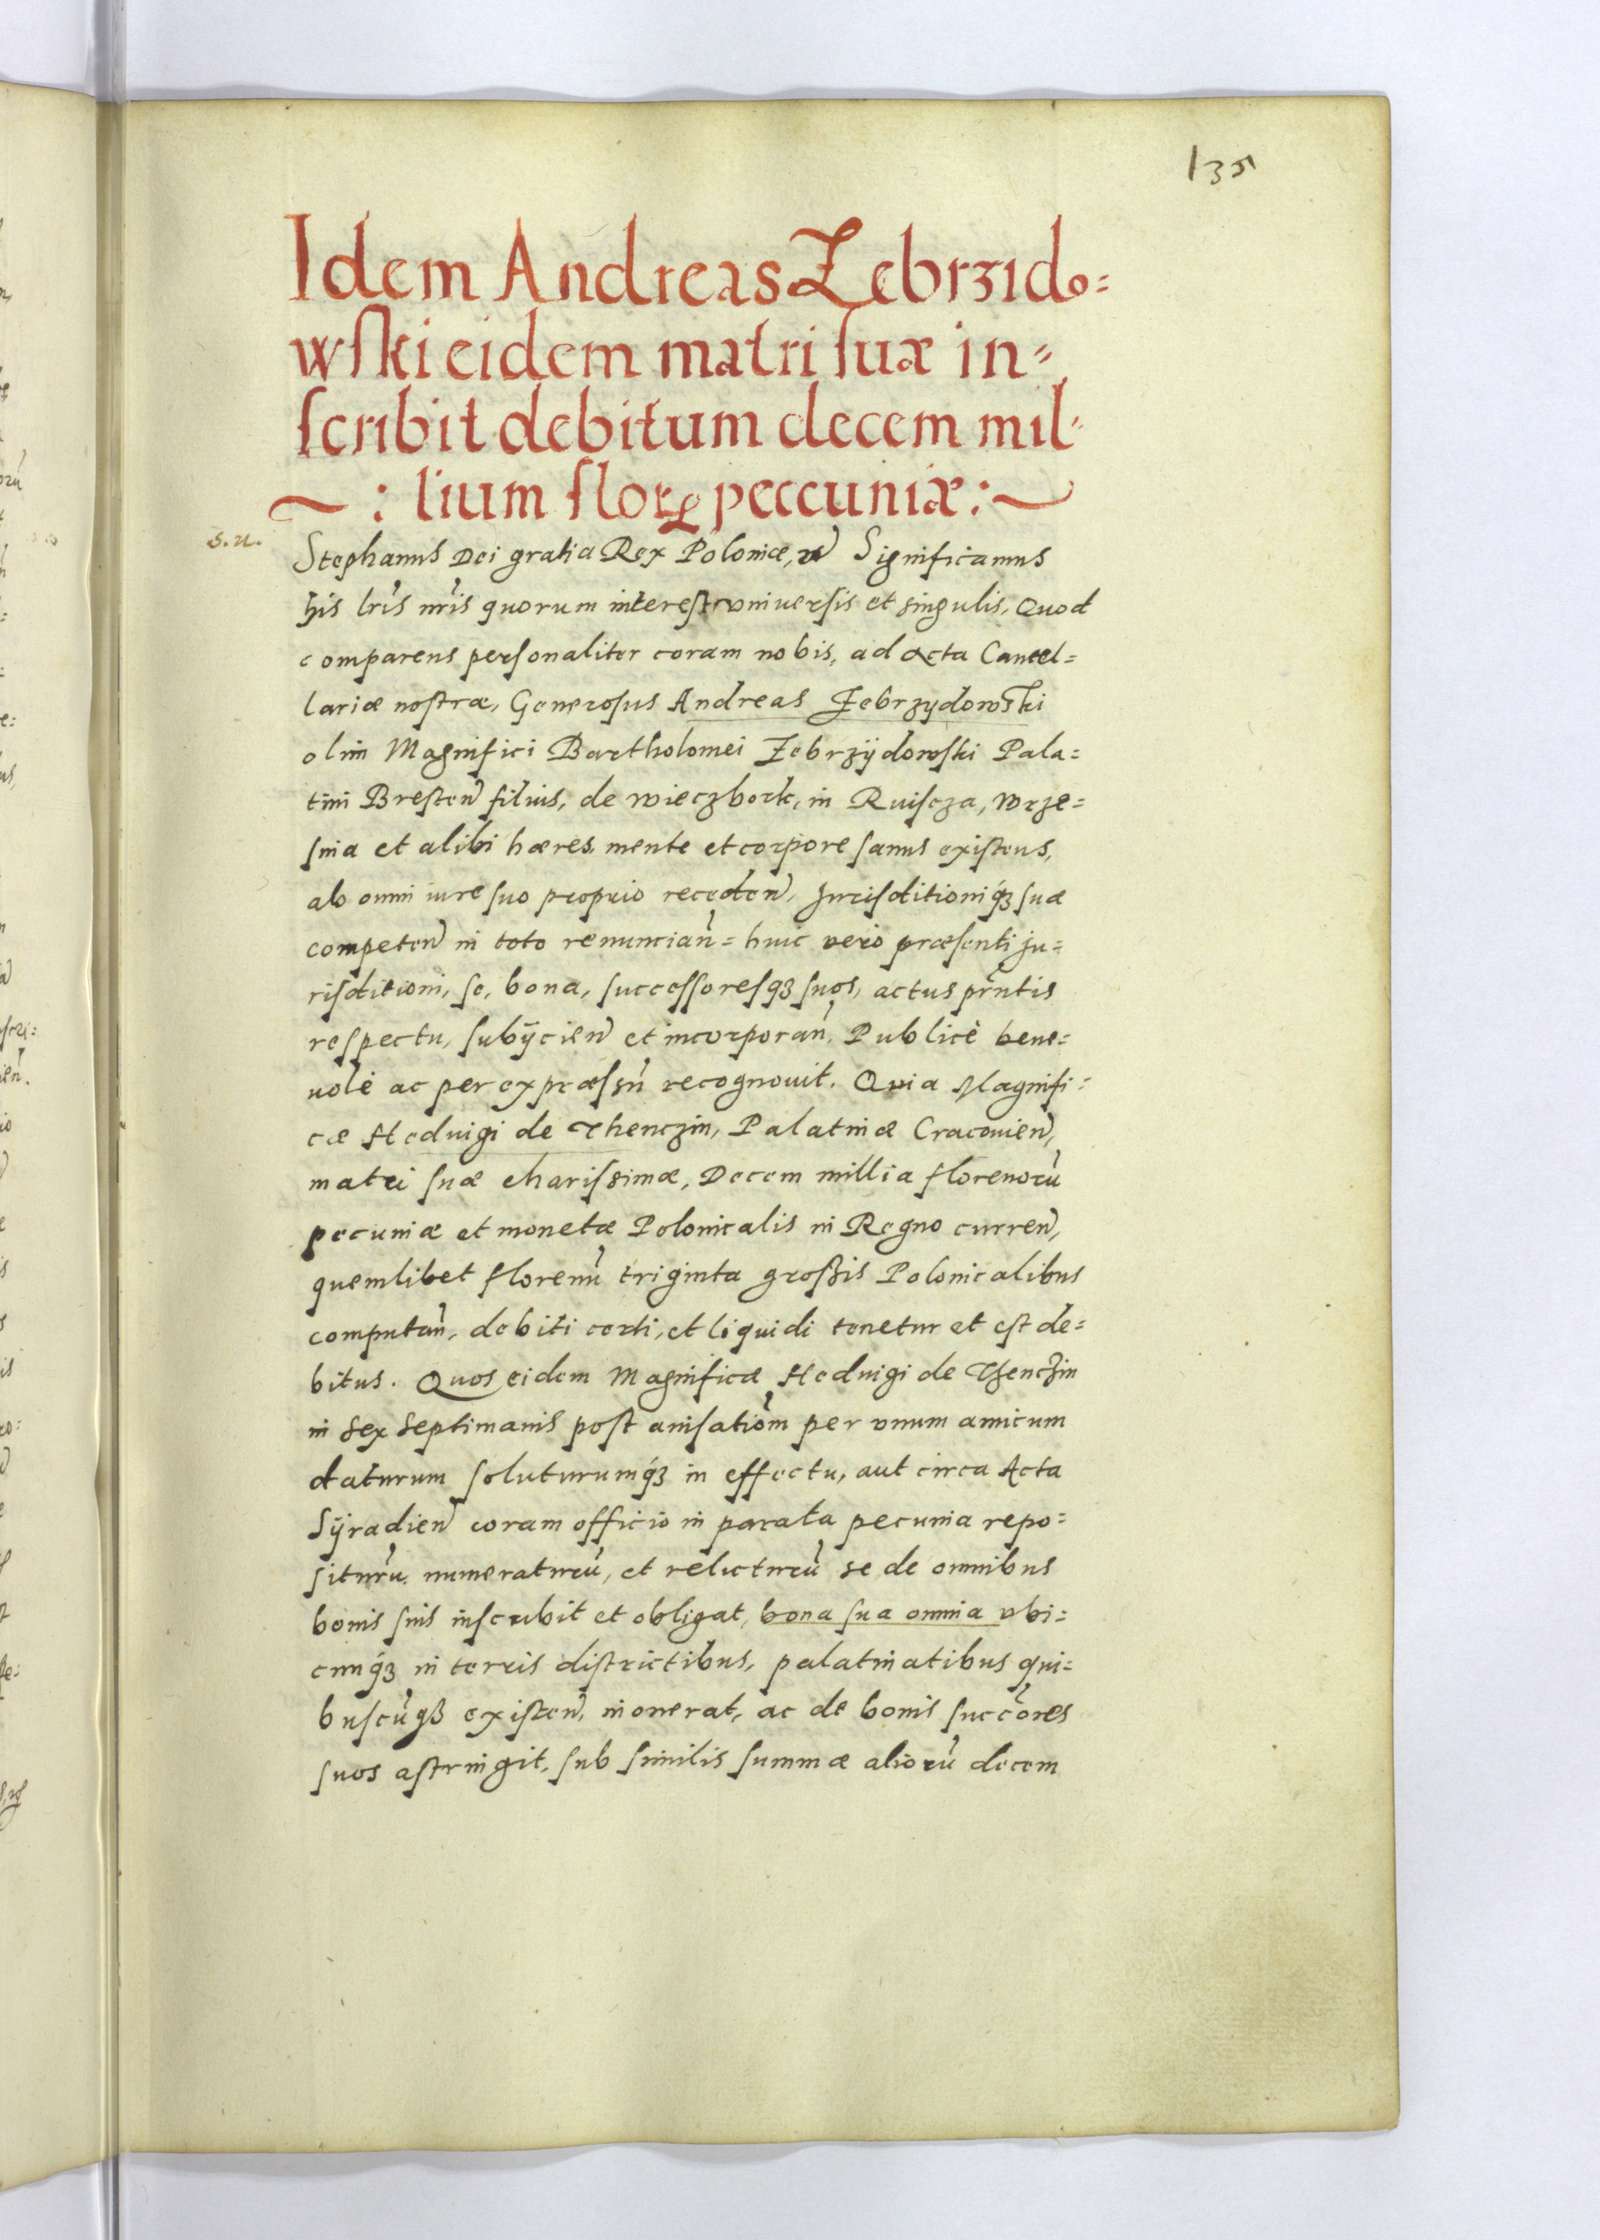 135
Idem Andreas Zebrzido=
wski eidem matri suæ in=
scribit debitum decem mil=
~: lium flor peccuniæ:~
S. n.
Stephanus Dei gratia Rex Poloniæ, Significamus
his lris nris quorum interest vniuersis et singulis, Quod
comparens personaliter coram nobis, ad acta Cancel=
lariæ nostræ, Generosus Andreas Zebrzydowski
olim Magnifici Bartholomei Zebrzÿdowski Pala=
tini Bresten filius, de wieczbork, in Ruiscza, wrze=
snia et alibi hæres, mente et corpore sanus existens,
ab omni iure suo proprio receden, Jurisditioniq́ꝫ suæ
competen in toto renuncian̄= huic vero præsenti ju=
risditioni, se, bona, successoresqꝫ suos, actus pr̄ntis
respectu, subÿcien et incorporan̄, Publicè bene=
uolè ac per expræssū recognouit. Quia Magnifi=
cæ Heduigi de Thenczin, Palatinæ Cracouien,
matri suæ charissimæ, Decem millia florenorū
pecuniæ et monetæ Polonicalis in Regno curren,
quemlibet florenū triginta großis Polonicalibus
computan̄, debiti certi, et liquidi tenetur et est de=
bitus. Quos eidem Magnificæ Heduigi de Thenczin
in sex septimanis post auisatiom̄ per vnum amicum
daturum soluturumq́ꝫ in effectu, aut circa Acta
Sÿradien coram officio in parata pecunia repo=
siturū, numeraturū, et relicturū se de omnibus
bonis suis inscribit et obligat, bona sua omnia vbi=
cunq́ꝫ in terris districtibus, palatinatibus qui=
buscūqꝫ existen, inonerat, ac de bonis succōres
suos astringit, sub similis summæ aliorū decem